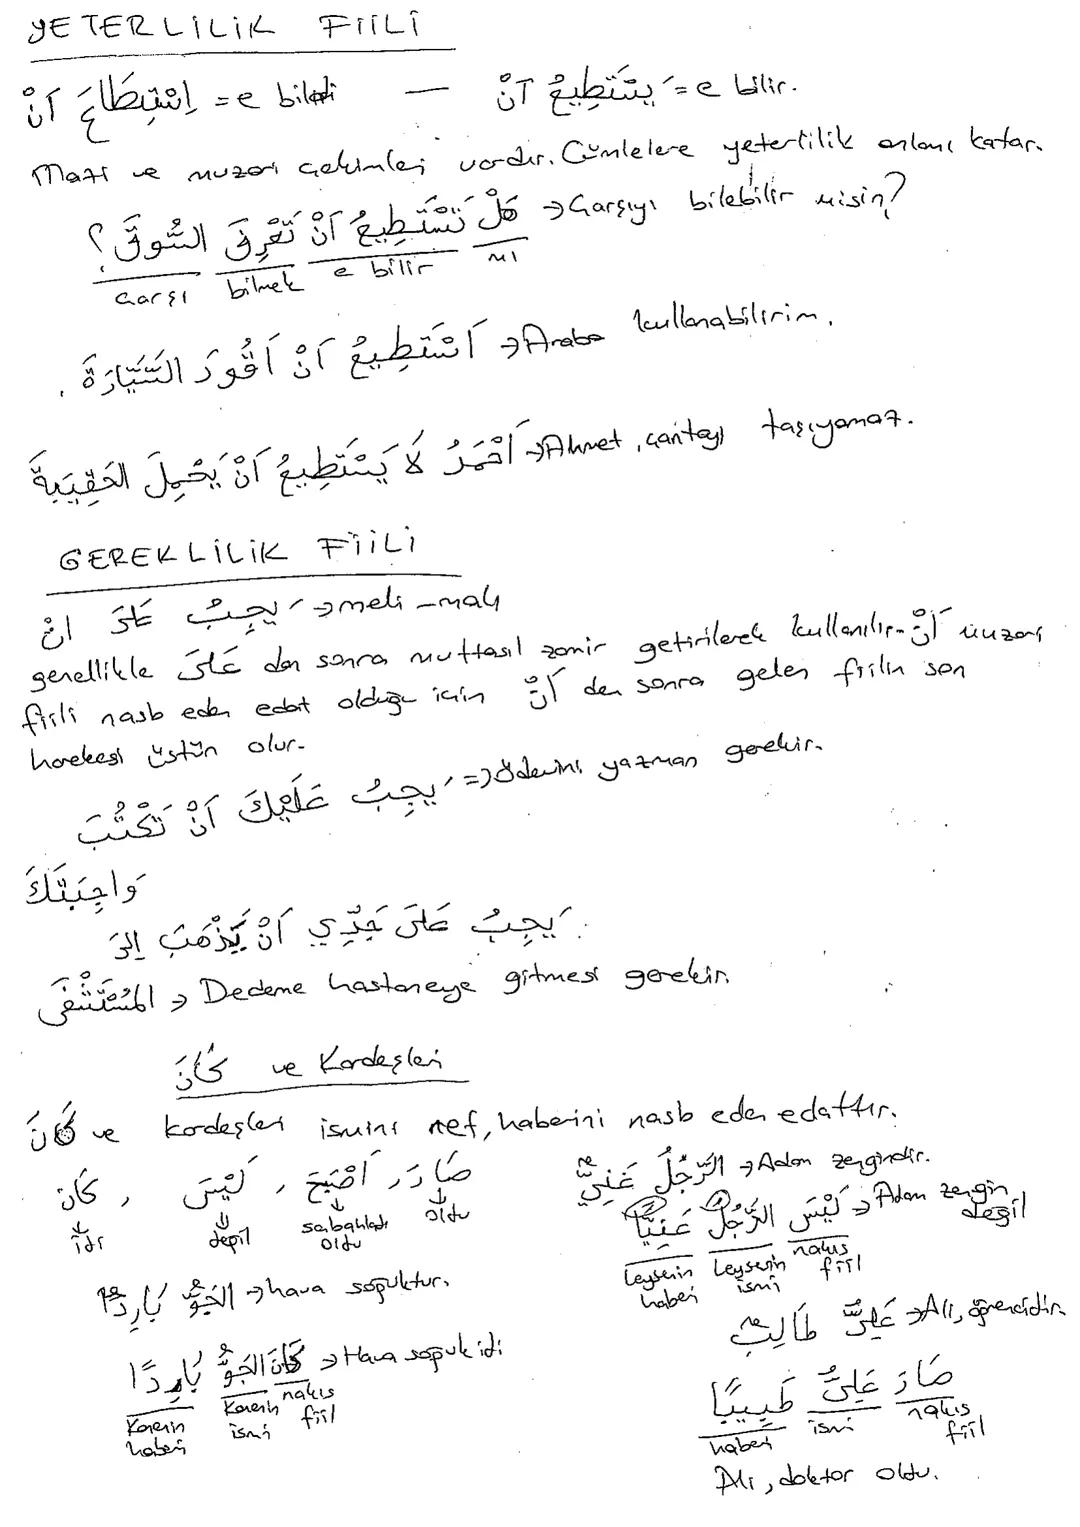 YETERLİLİK FİİLİ
اِسْتِطَاعَ اَنْ = e bildi — يَسْتَطِيعُ اَنْ = e bilir.
Mazi ve muzari çekimleri vardır. Cümlelere yeterlilik anlamı katar.
هَلْ تَسْتَطِيعُ اَنْ تَعْرِفَ السُّوقَ ؟ → Çarşıyı bilebilir misin?
çarşı bilmek e bilir mı
اَسْتَطِيعُ اَنْ اَقُودَ السَّيَّارَةَ . → Araba kullanabilirim.
اَحْمَدُ لَا يَسْتَطِيعُ اَنْ يَحْمِلَ الحَقِيبَةَ → Ahmet, çantayı taşıyamaz.
GEREKLİLİK FİİLİ
يَجِبُ عَلَى انْ → meli - malı
genellikle عَلَى dan sonra muttasıl zamir getirilerek kullanılır. اَنْ muzari
fiili nasb eden edat olduğu için اَنْ den sonra gelen fiilin son
harekesi üstün olur.
يَجِبُ عَلَيْكَ اَنْ تَكْتُبَ => Ödevini yazman gerekir.
وَاجِبَتَكَ
يَجِبُ عَلَى جَدِّي اَنْ يَذْهَبَ اِلَى
المُسْتَشْفَى → Dedeme hastaneye gitmesi gerekir.
كَانَ ve Kardeşleri
كَانَ ve kardeşleri ismini ref, haberini nasb eden edattır.
صَارَ , اَصْبَحَ , لَيْسَ , كَانَ
idi değil sabahladı oldu oldu
الرَّجُلُ غَنِيٌّ → Adam zengindir.
لَيْسَ الرَّجُلُ غَنِيًّا → Adam zengin değil
leysenin haberi leysenin ismi nakıs fiil
الجَوُّ بَارِدٌ → hava soğuktur.
عَلِيٌّ طَالِبٌ → Ali, öğrencidir.
كَانَ الجَوُّ بَارِدًا → Hava soğuk idi
Kanenin haberi Kanenin ismi nakıs fiil
صَارَ عَلِيٌّ طَبِيبًا
haberi ismi nakıs fiil
Ali, doktor oldu.